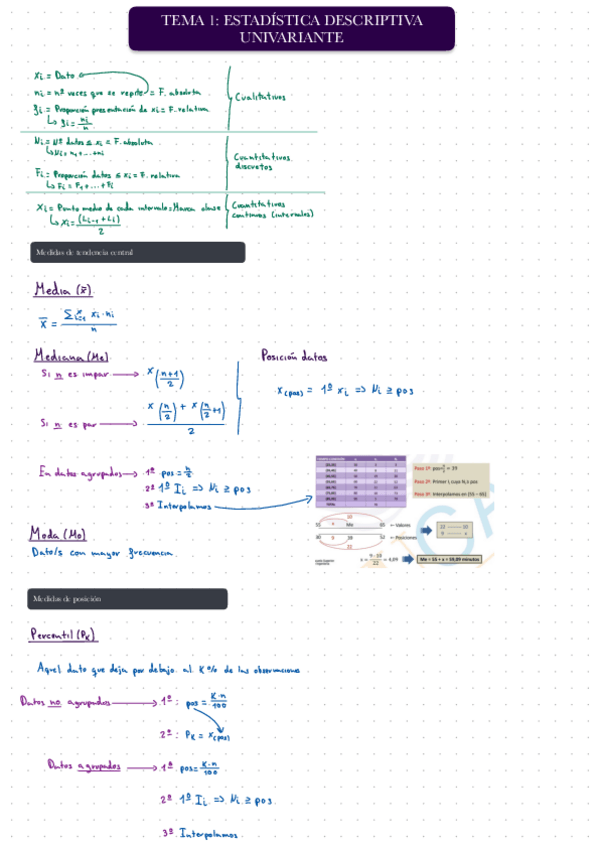 TEMA 1: ESTADÍSTICA DESCRIPTIVA
UNIVARIANTE
xi = Dato
ni = nº veces que se repite = F. absoluta
fi = Proporción presentación de xi = F. relativa
↳ fi = ni/n
Cualitativos
Ni = Nº datos ≤ xi = F. absoluta
↳ Ni = n1 + ... + ni
Fi = Proporción datos ≤ xi = F. relativa
↳ Fi = F1 + ... + Fi
Cuantitativos
discretos
xi = Punto medio de cada intervalo = Marca clase
↳ xi = (Li-1 + Li)/2
Cuantitativos
continuos (intervalos)
Medidas de tendencia central
Media (x̄)
x̄ = Σ xi · ni / n
Mediana (Me)
Si n es impar → x((n+1)/2)
Si n es par → (x(n/2) + x(n/2+1))/2
Posición datos
x(pos) = 1º xi => Ni ≥ pos
En datos agrupados → 1º pos = n/2
2º 1º Ii => Ni ≥ pos
3º Interpolamos
Paso 3º: Interpolamos en [55 – 65)
55 Me 65 ← Valores
30 39 52 ← Posiciones
22 10
9 x
x = 9·10/22 = 4,09
Me = 55 + x = 59,09 minutos
Moda (Mo)
Dato/s con mayor frecuencia.
Medidas de posición
Percentil (Pk)
Aquel dato que deja por debajo al K% de las observaciones
Datos no agrupados → 1º: pos = K·n/100
2º: Pk = x(pos)
Datos agrupados → 1º pos = K·n/100
2º 1º Ii => Ni ≥ pos
3º Interpolamos